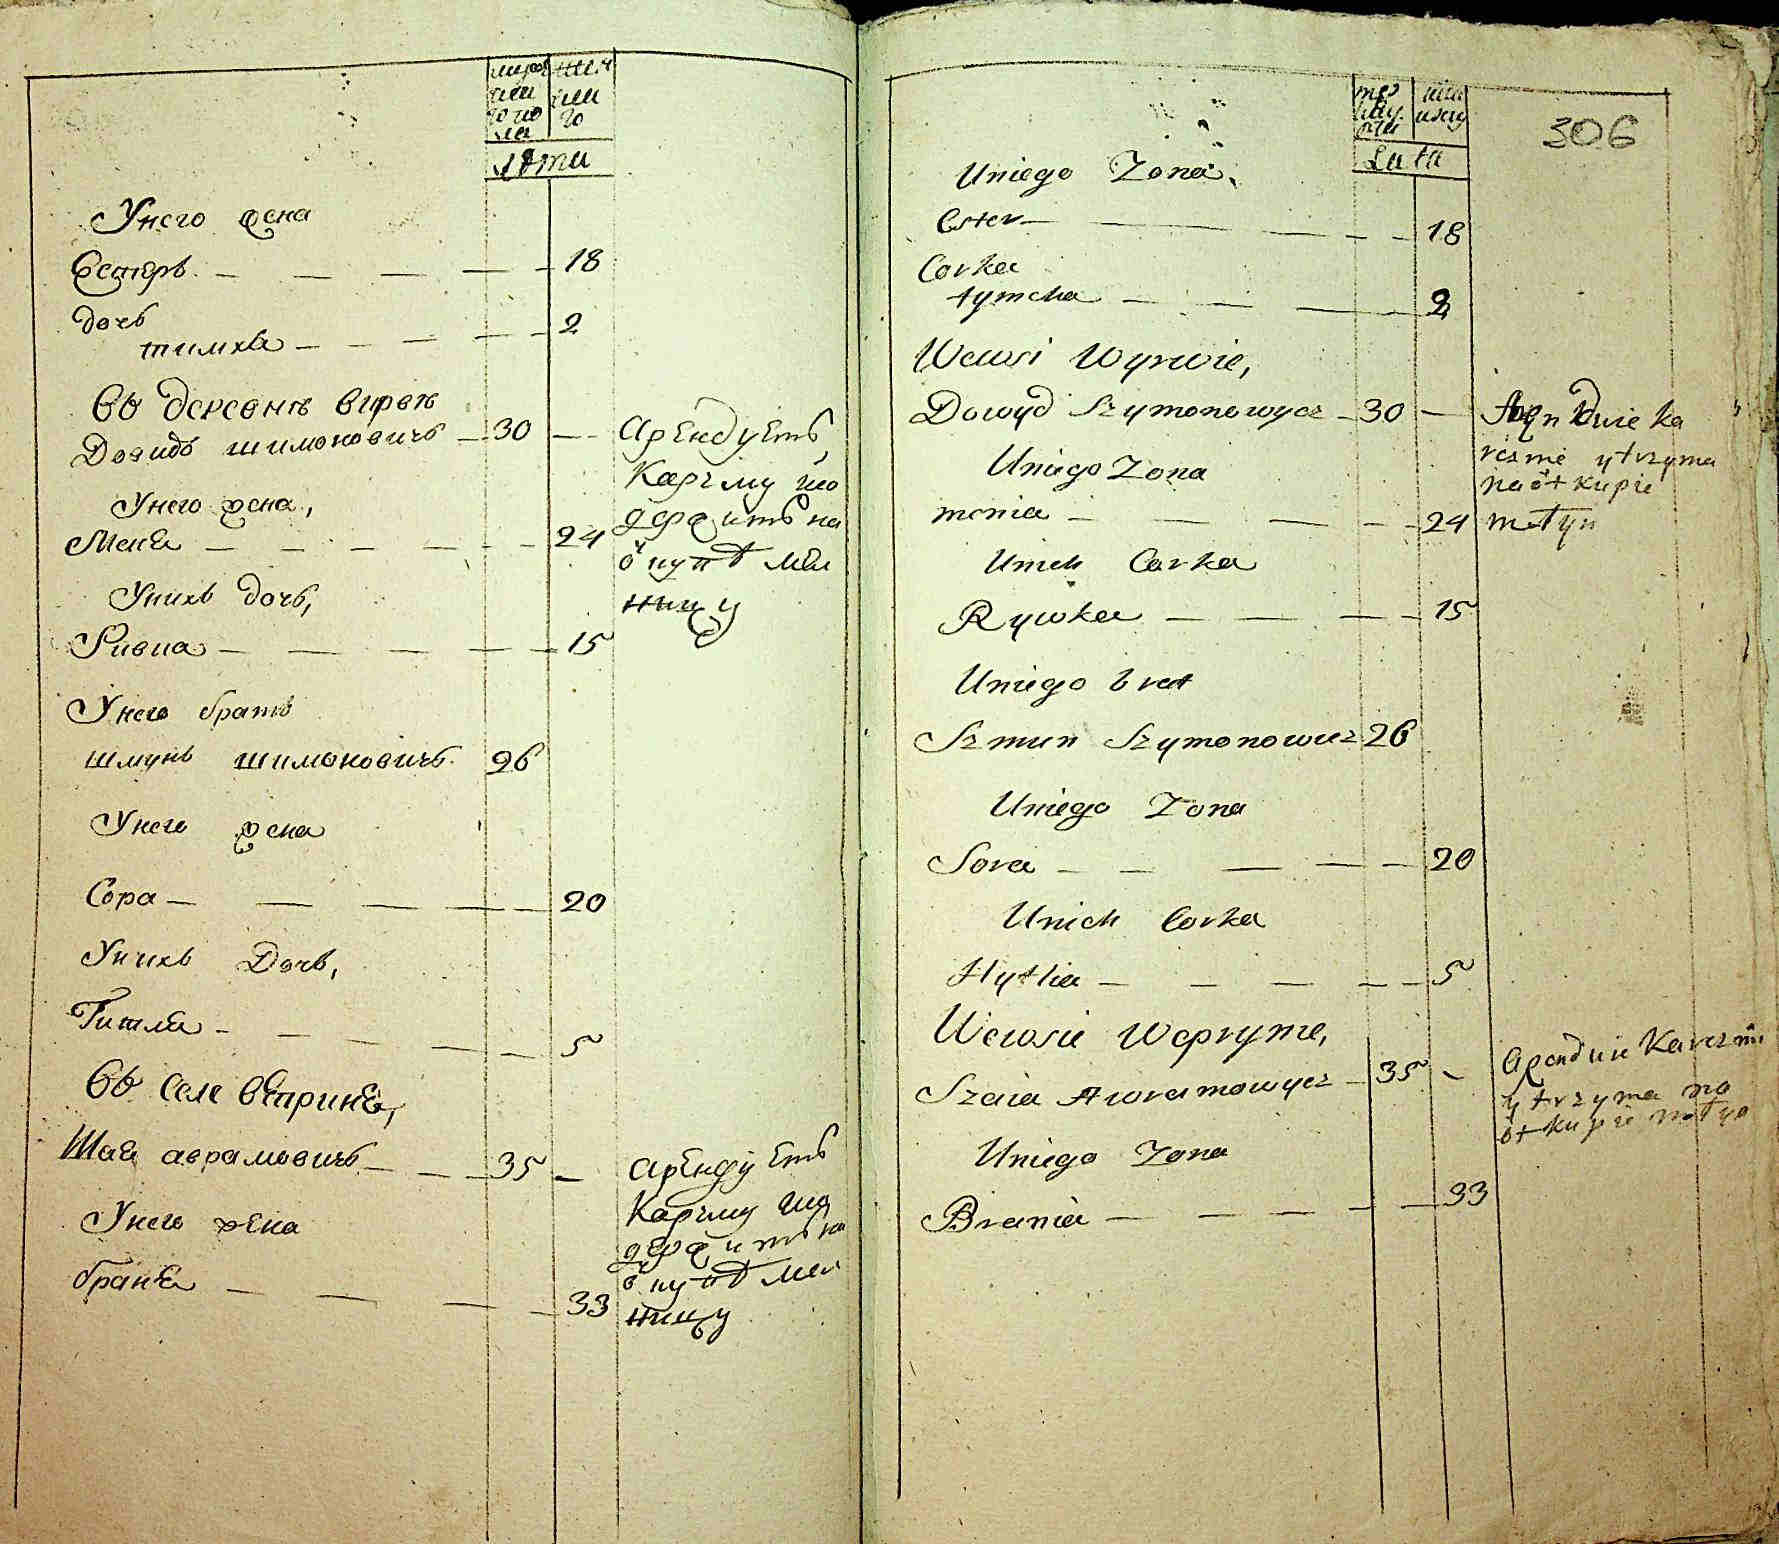 Лѣта
Унего жена
Естеръ 18
дочь
тимха 2
Во деревне вирвѣ
Довидъ шимоновичъ 30
Арендуетъ
Карчму
Унего жена,
Меня 24
держитъ на
ѿкупѣ мел
ницу
Унихъ дочь,
Ривка 15
Унего братъ
шмунь шимоновичъ 26
Унего жена
Сора 20
Унихъ Дочь,
Гитля 5
Во Селе вепринѣ,
Шая аврамовичъ 35
арендуетъ
Карчму
держитъ на
ѿкупѣ мел
ницу
Унего жена
браня 33
306
Lata
Uniego Zona,
Ester 18
Corka
tymcha 2
Wewsi Wyrwie,
Dowyd Szymonowycz 30
ka
rczme ytrzyma
na ot kupie
młyn
Uniego Zona
menia 24
Unich Corka
Rywka 15
Uniego brat
Szmun Szymonowicz 26
Uniego Zona
Sora 20
Unich Corka
Hytlia 5
Wewsie Weprynie,
Szaia Awramowycz 35
Arenduie Karczmu
ytrzyma na
ot kupie młyn
Uniego Zona
Brania 33